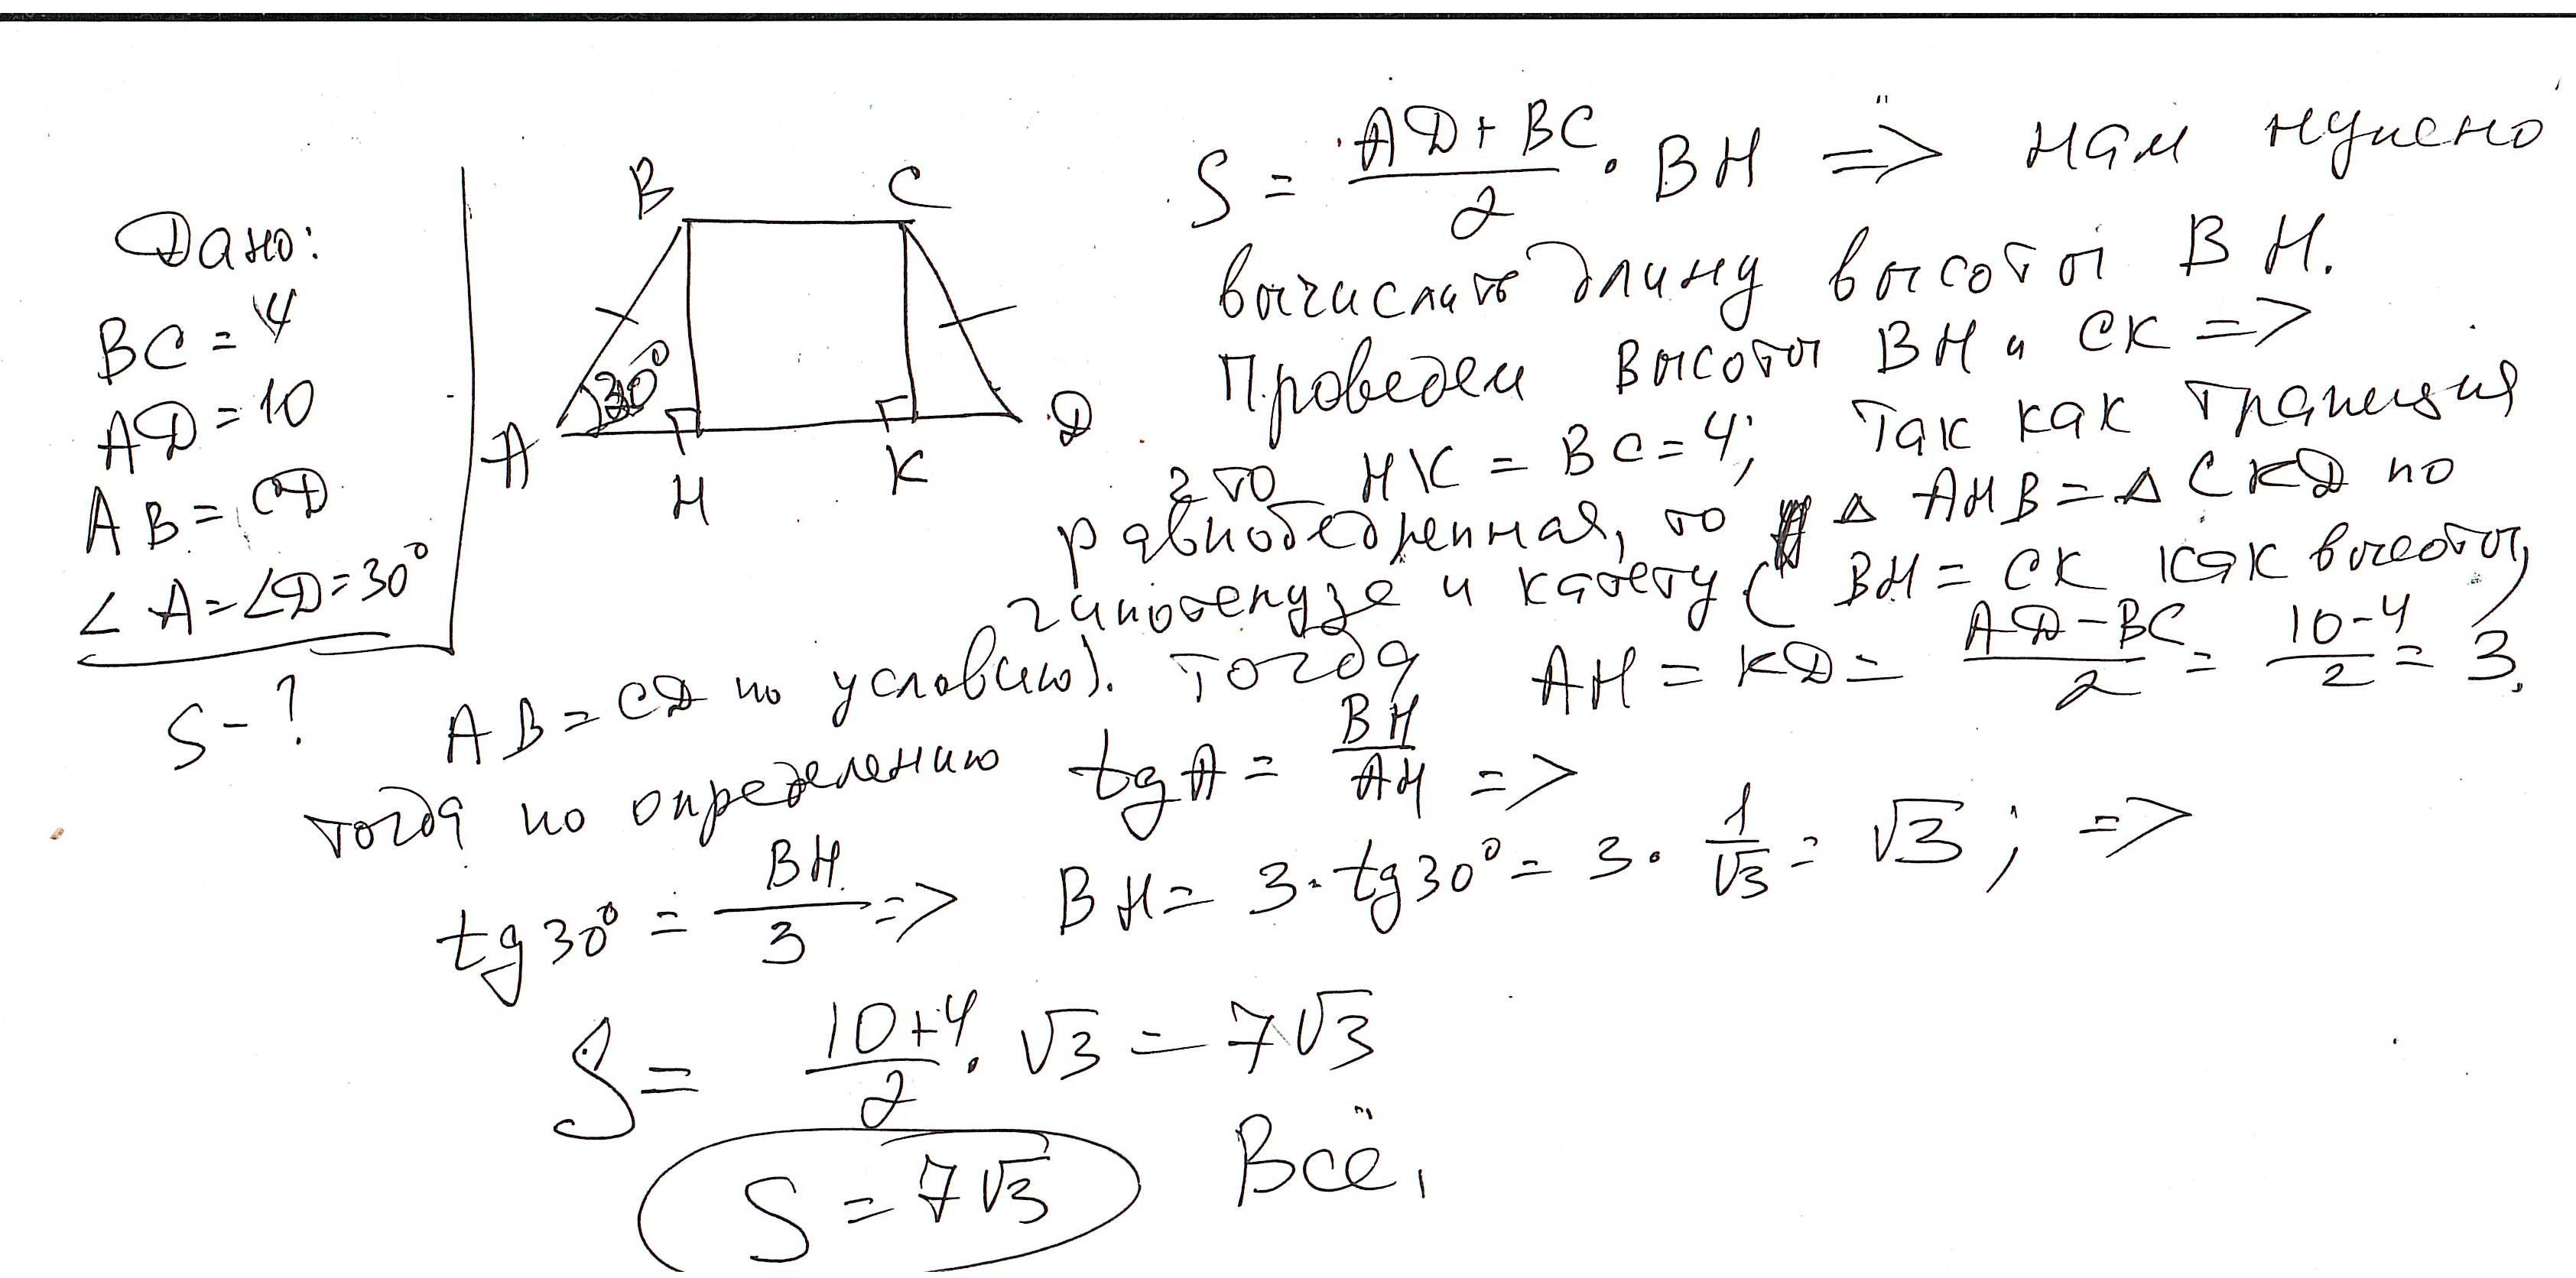 Дано:
BC = 4
AD = 10
AB = CD
∠A = ∠D = 30°
S - ?
B
C
30°
A
H
K
D
S = (AD + BC)/2 · BH => нам нужно
вычислить длину высоты BH.
Проведем высоты BH и CK =>
что HK = BC = 4; Так как трапеция
равнобедренная, то △ AHB = △ CKD по
гипотенузе и катету (BH = CK как высоты,
AB = CD по условию). Тогда AH = KD = (AD - BC)/2 = (10 - 4)/2 = 3.
тогда по определению tg A = BH/AH =>
tg 30° = BH/3 => BH = 3 · tg 30° = 3 · 1/√3 = √3; =>
S = (10 + 4)/2 · √3 = 7√3
S = 7√3 Всё,